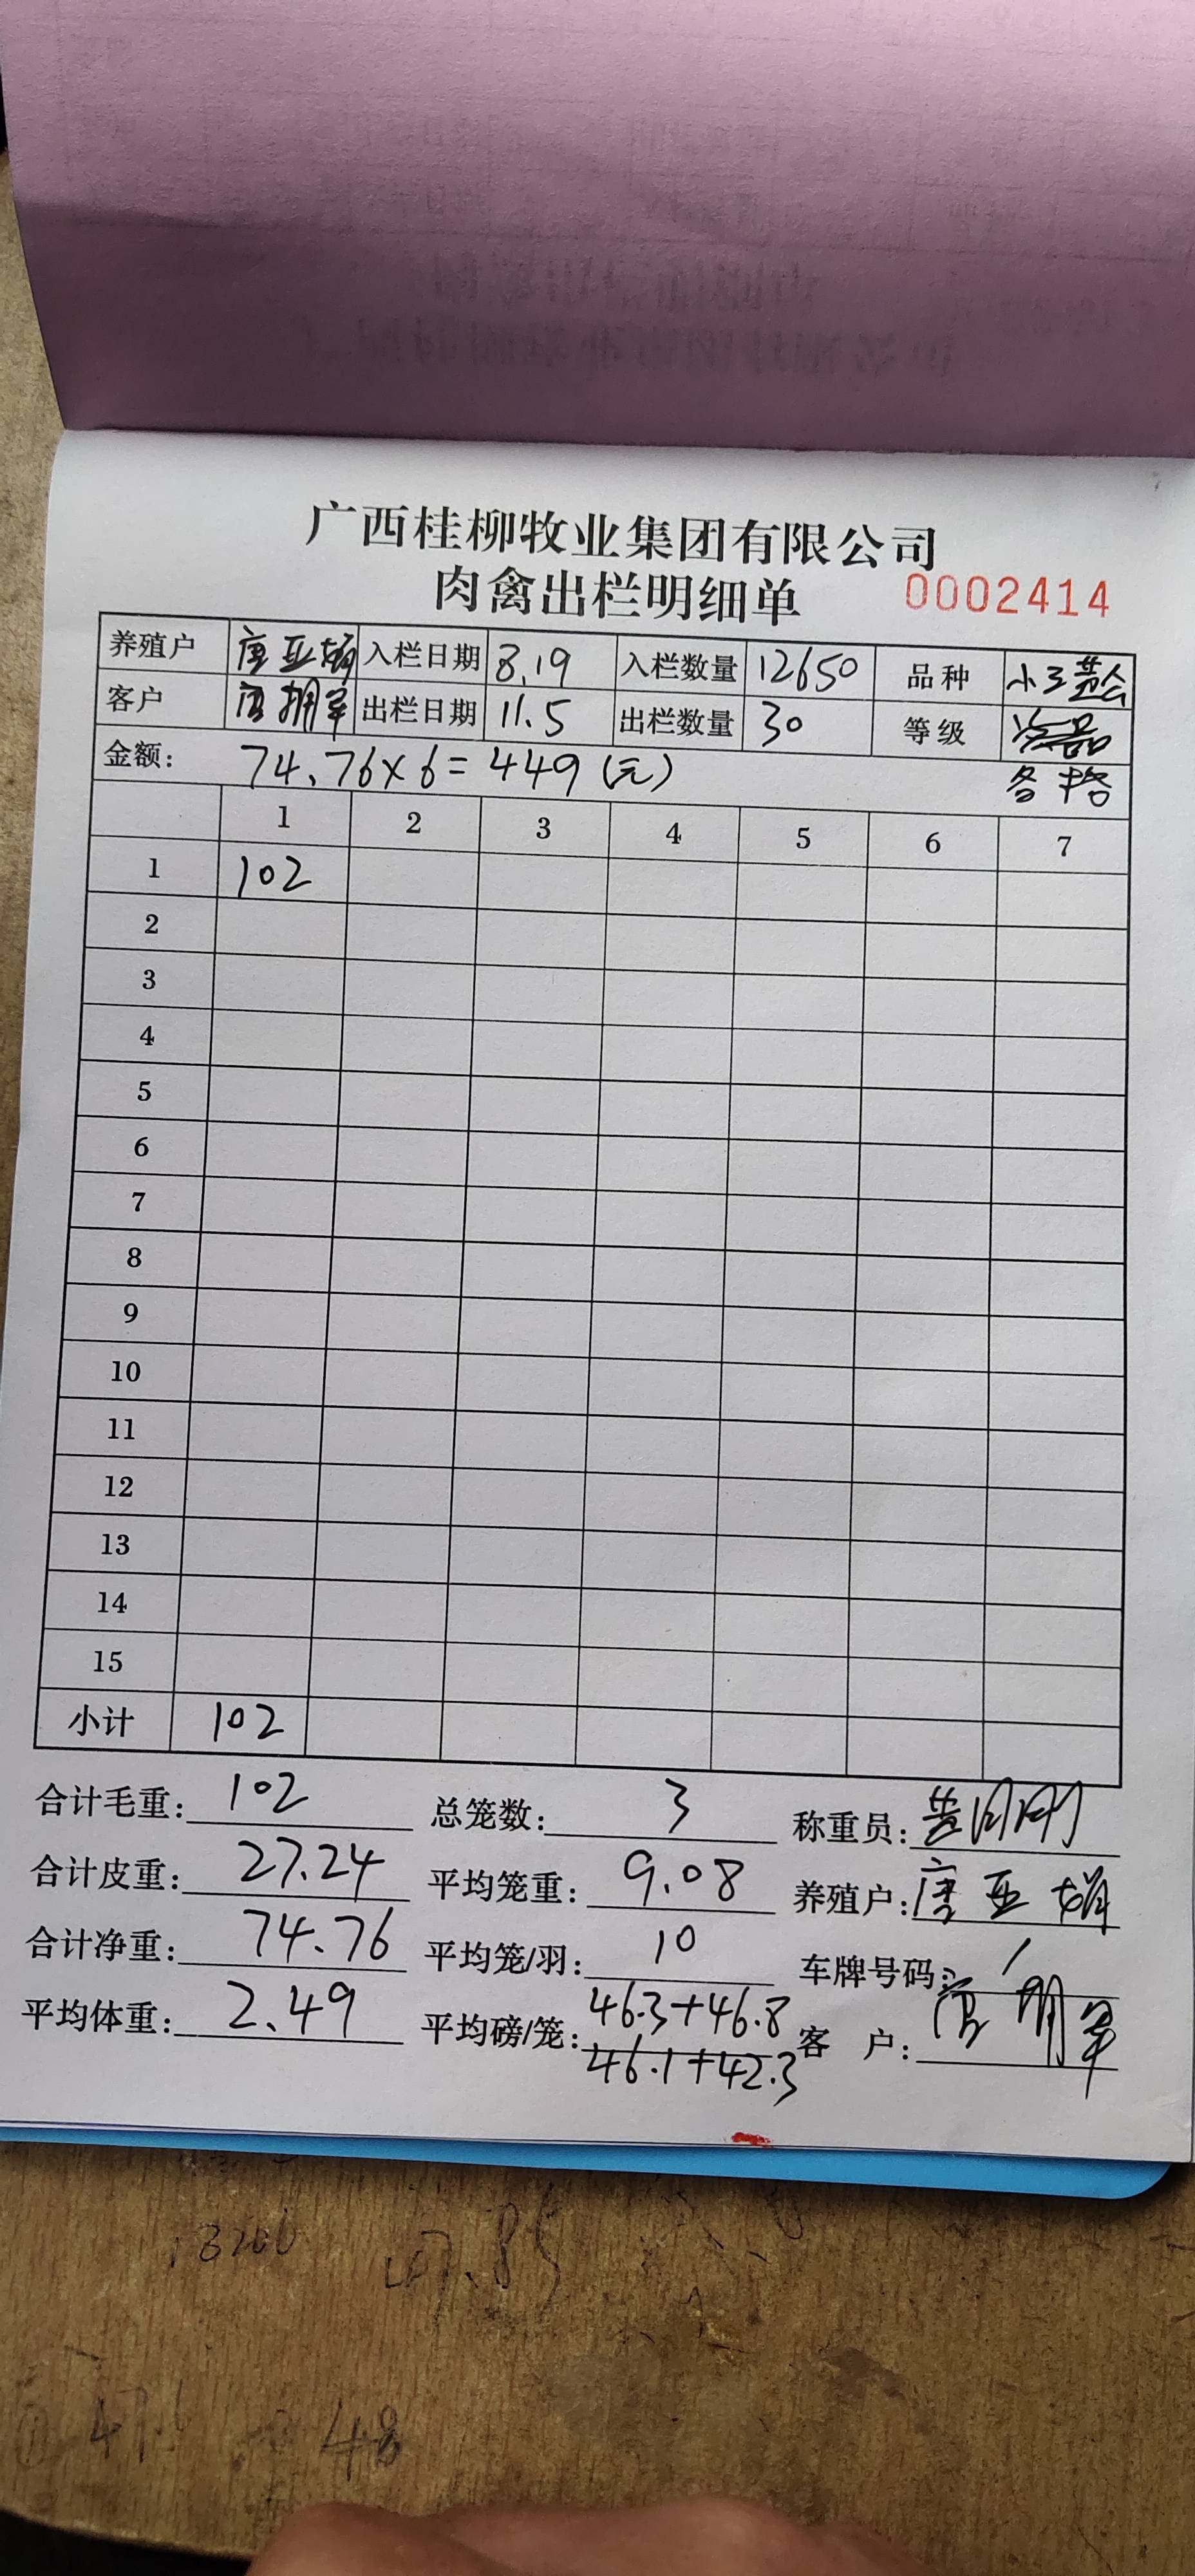 广西桂柳牧业集团有限公司
肉禽出栏明细单 0002414
养殖户 唐亚娟 入栏日期 8.19 入栏数量 12650 品种 小三黄
客户 唐拥军 出栏日期 11.5 出栏数量 30 等级
金额: 74.76×6=449(元)
1 2 3 4 5 6 7
1 102
2
3
4
5
6
7
8
9
10
11
12
13
14
15
小计 102
合计毛重: 102 总笼数: 3 称重员: 黄
合计皮重: 27.24 平均笼重: 9.08 养殖户: 唐亚娟
合计净重: 74.76 平均笼/羽: 10 车牌号码: /
平均体重: 2.49 平均磅/笼: 46.3+46.8 客 户: 唐拥军
46.1+42.3
47.85
48